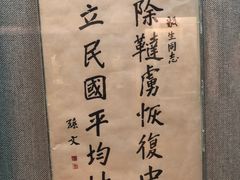 毅生同志
除韃虜恢復中
立民國平均地
孫文